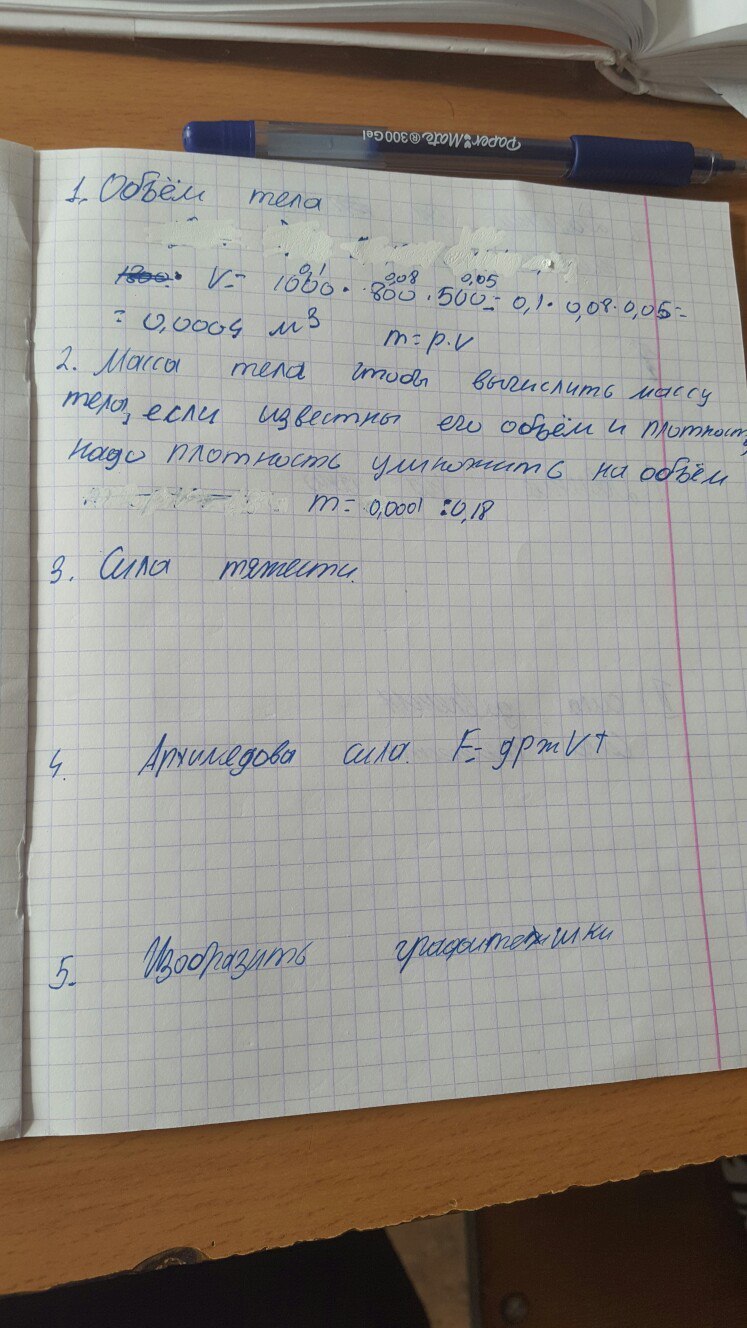 Paper Mate ® 300 Gel
1. Объём тела
V= 1000 · 800 · 500 = 0,1 · 0,08 · 0,05 =
0,1 0,08 0,05
= 0,0004 м³ m = p·V
2. Масса тела чтобы вычислить массу
тела, если известны его объём и плотность,
надо плотность умножить на объём
m = 0,0001 : 0,18
3. Сила тяжести.
4. Архимедова сила. F= gpжVт
5. Изобразить